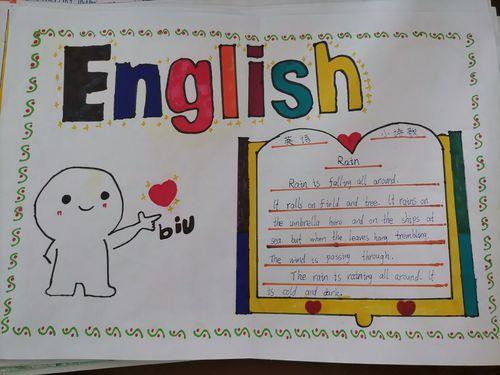 English
biu
英语 小诗歌
Rain
Rain is falling all around.
It ralls on field and tree. It rains on
the umbrella here and on the ships at
sea but when the leaves hang trembling.
The wind is passing through.
The rain is raining all around. It
is cold and dark.